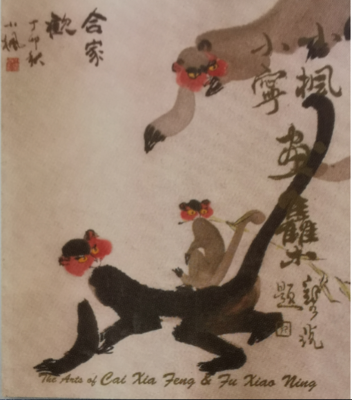 合家
歡
丁卯秋
小楓
小楓
小寧
畫雧
題
The Arts of Cai Xia Feng & Fu Xiao Ning